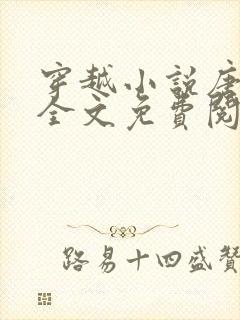 穿越小说唐
全文免費閱
路易十四盛贊